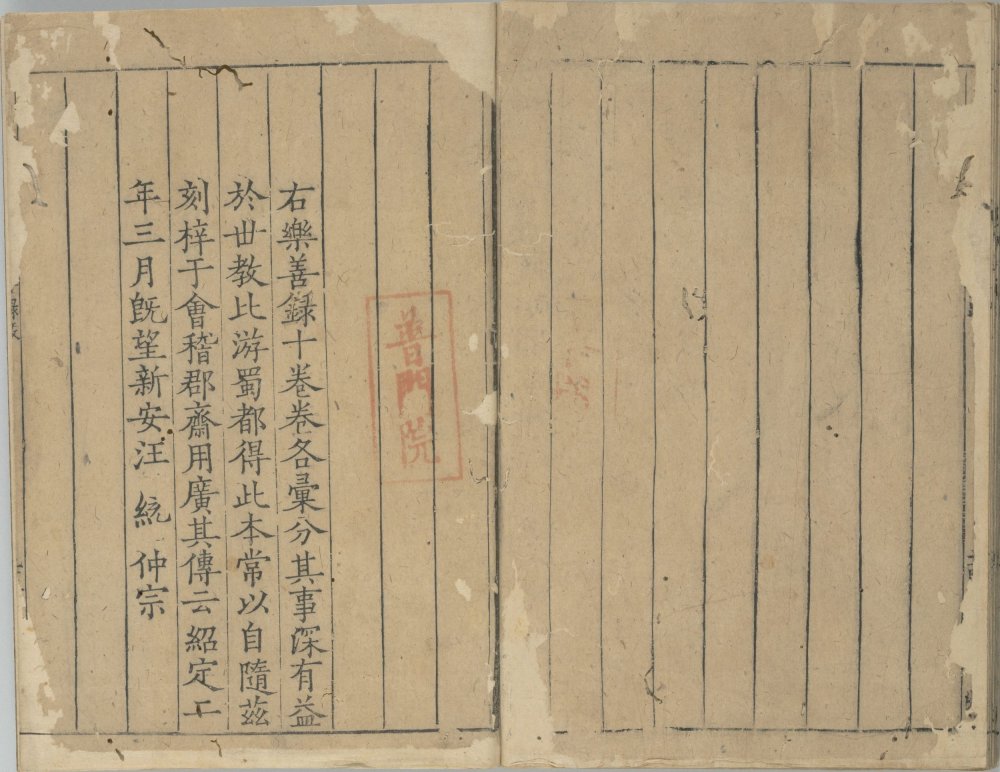 右樂善録十卷卷各彙分其事深有益
於丗教比游蜀都得此本常以自隨茲
刻梓于會稽郡齋用廣其傳云紹定二
年三月旣望新安汪統仲宗
普門院